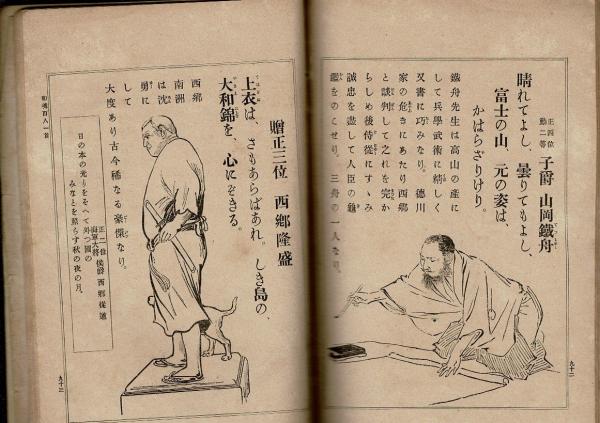 正四位
勲二等
子爵 山岡鐵舟
晴れてよし、曇りてもよし、
富士の山、元の姿は、
かはらざりけり。
鐵舟先生は高山の産に
して兵學武術に精しく
又書に巧みなり。徳川
家の危きにあたり西郷
と談判して之れを完か
らしめ後侍從にすゝみ
誠忠を盡して人臣の龜
鑑をのこせり。三舟の一人なり。
九十二
贈正三位 西郷隆盛
上衣は、さもあらばあれ。しき島の、
大和錦を、心にぞきる。
西郷
南洲
は沈
勇に
して
大度あり古今稀なる豪傑なり。
正二位
海軍大將
侯爵 西郷從道
日の本の光りをそへて外つ國の
みなとを照らす秋の夜の月。
和魂百人一首
九十三